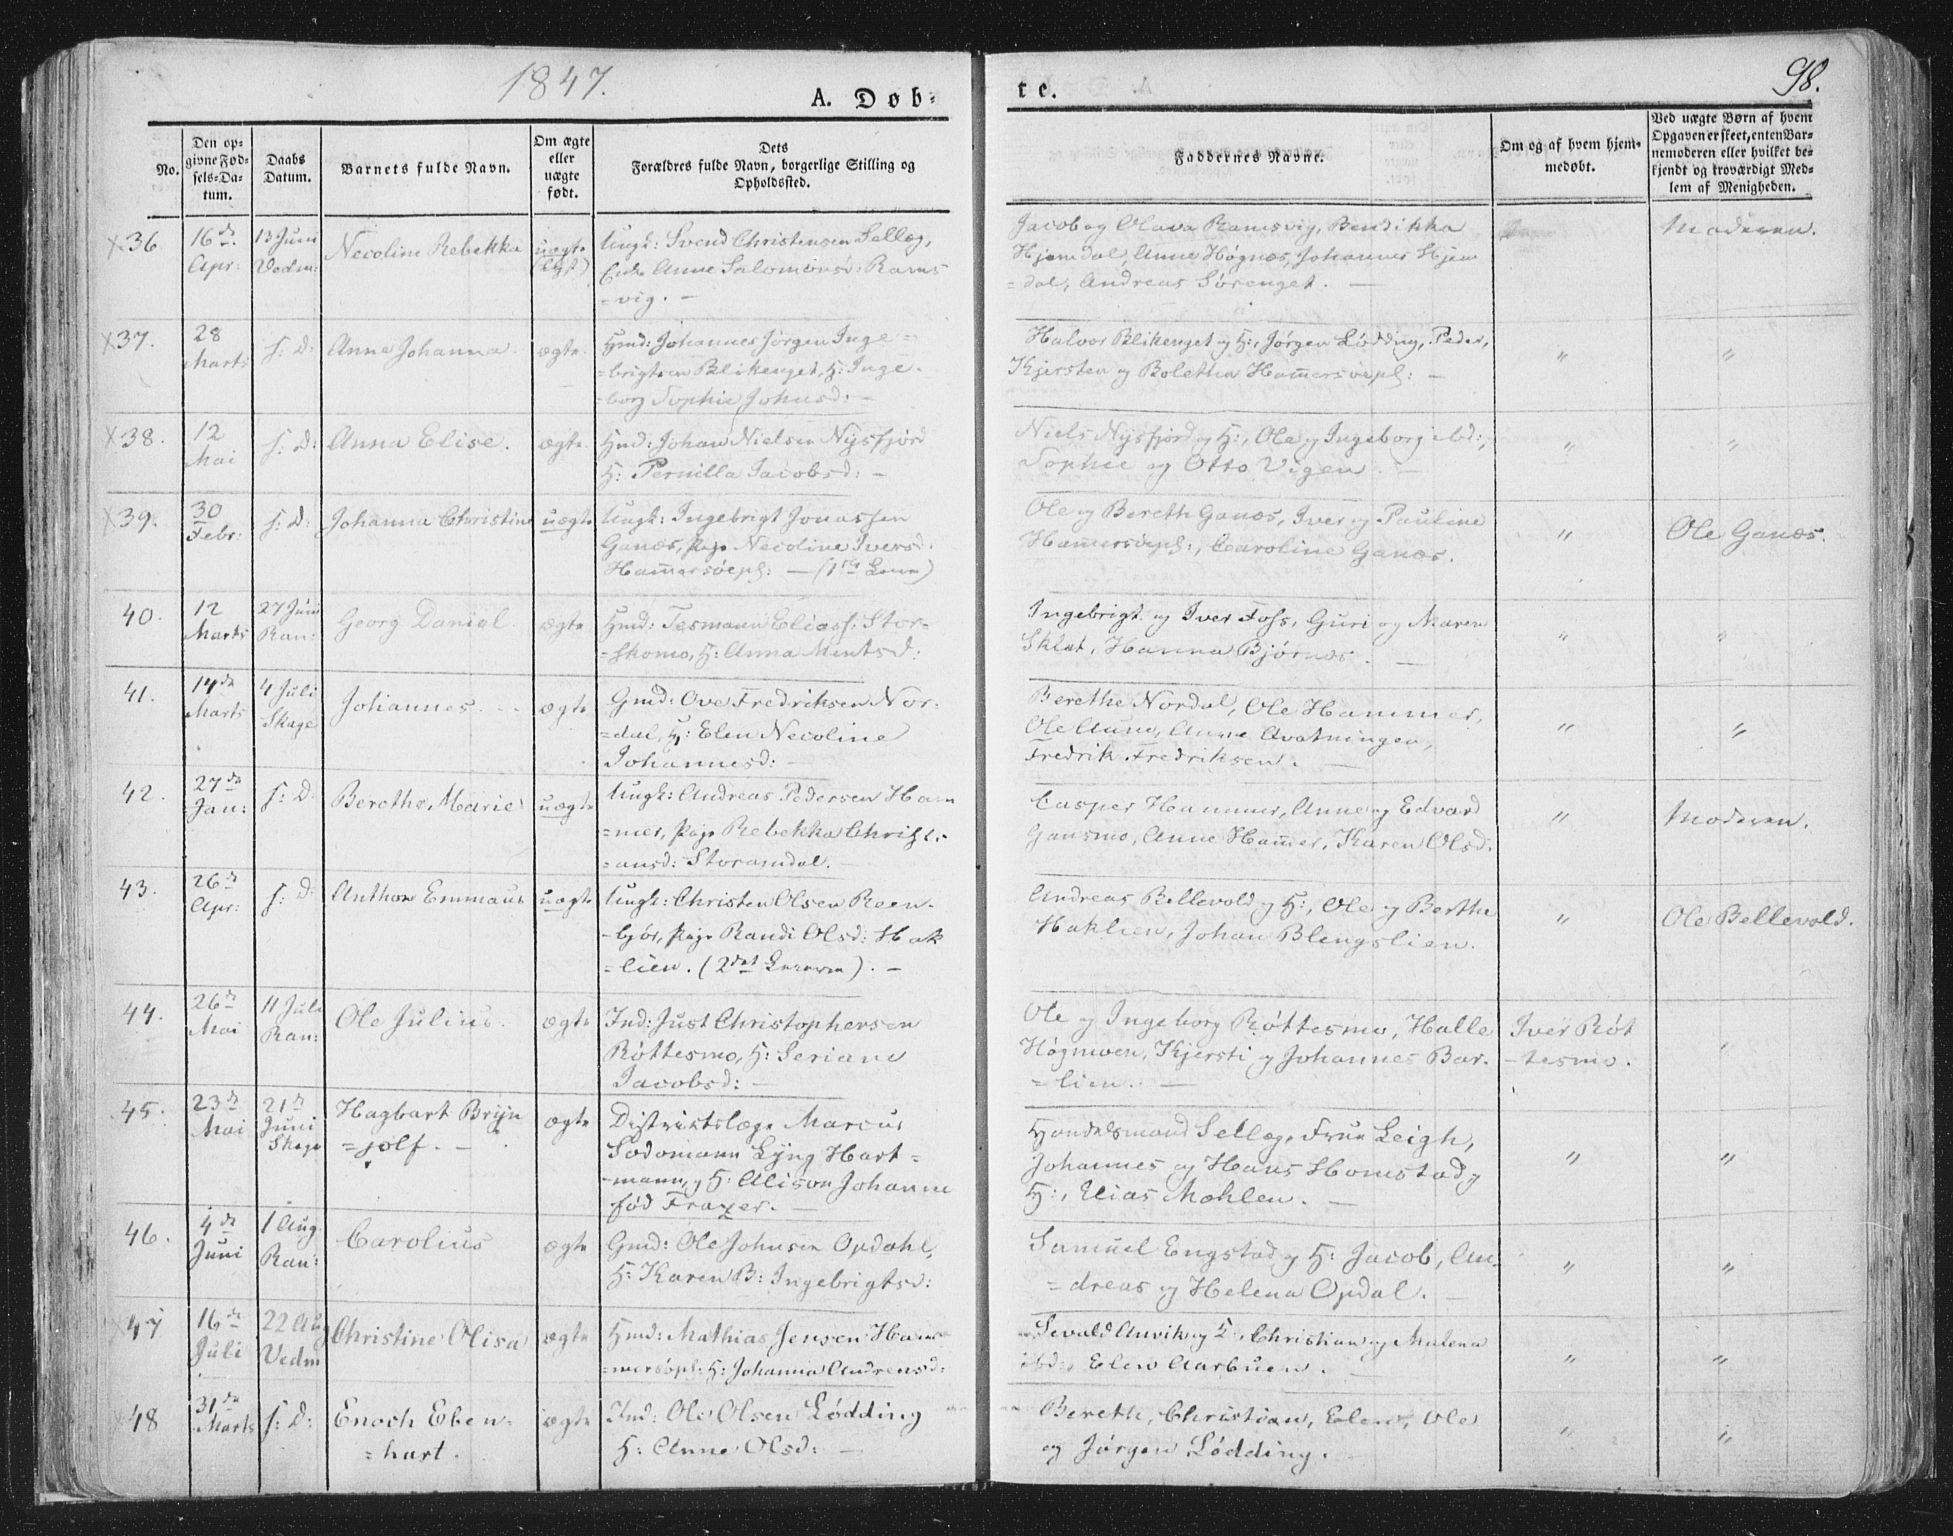 1847.
A. Døb-
te.
98.
No.
Den op-
givne Fød-
sels-Da-
tum.
Daabs
Datum.
Barnets fulde Navn.
Om ægte
eller
uægte
født.
Dets
Forældres fulde Navn, borgerlige Stilling og
Opholdssted.
Faddernes Navne.
Om og af hvem hjem-
medøbt.
Ved uægte Børn af hvem
Opgaven er skeet, enten Bar-
nemoderen eller hvilket be-
kjendt og troværdigt Med-
lem af Menigheden.
36
16de
Apr:
13 Juni
Vedm:
Necoline Rebekka
uægte
Ungk: Svend Christensen Sellæg,
Enke Anne Salomonsd: Rams
=vig. —
Jacob og Olava Ramsvig, Bendikka
Hjemdal, Anne Høgnæs, Johannes Hjem
=dal, Andreas Sørenget. —
Moderen.
37.
28
Marts
s: D:
Anne Johanna.
ægte
Hmd: Johannes Jørgen Inge=
=brigtsen Blikenget, H: Inge-
=borg Sophie Johnsd: —
Halvor Blikenget og H:, Jørgen Lødding, Peder,
Kjersten og Boletha Hamersøepl: —
"
"
38.
12
Mai
s: D:
Anna Elise.
ægte
Hmd: Johan Nielsen Nysfjord
H: Pernilla Jacobsd: —
Niels Nysfjord og H:, Ole og Ingeborg ibd:,
Sophie og Otto Vigen. —
"
"
39.
30
Febr:
s: D:
Johanna Christine
uægte
Ungk: Ingebrigt Jonassen
Ganæs, Pige Necoline Iversd.
Hamersøepl: —
Ole og Bereth Ganæs, Iver og Pauline
Hamersøepl:, Caroline Ganæs.
"
Ole Ganæs.
40.
12
Marts
27 Juni
Ran:
Georg Daniel.
ægte
Hmd: Tesmann Eliass: Stor-
=skomo, H: Anna Mentsd:
Ingebrigt og Iver Foss, Guri og Maren
Sklet, Hanna Bjørnæs. —
"
"
41.
14de
Marts
4 Juli
Skage
Johannes.
ægte
Gmd: Ove Fredriksen Nor-
=dal, H: Elen Necoline
Johannesd: —
Berethe Nordal, Ole Hammer,
Ole Aune, Anne Avatningen,
Fredrik Fredriksen. —
"
"
42.
27de
Jan:
s: D:
Berethe Marie
uægte
Ungk: Andreas Pedersen Ham
=mer, Pige Rebekka Christi-
=ansd: Storamdal. —
Casper Hammer, Anne og Edvard
Gansmo, Anne Hamer, Karen Olsd.
"
Moderen.
43.
26de
Apr:
s: D:
Anthon Emmaus
uægte
Ungk: Christen Olsen Roen-
-bjør, Pige Randi Olsd: Hak
=lien. —
Andreas Bellevold og H:, Ole og Berthe
Haklien, Johan Blengslien.
"
Ole Bellevold.
44.
26de
Mai
11 Juli
Ran:
Ole Julius.
ægte
Ind: Just Christophersen
Røttesmo, H: Seriane
Jacobsd: —
Ole og Ingeborg Røttesmo, Halle
Høgmoen, Kjersti og Johannes Bar-
=lien. —
Iver Røt
-tesmo.
"
45.
23de
Mai
21de
Juni
Skage
Hagbart Bryn
=jolf. —
ægte
Distriktslæge Marcus
Sodomann Lyng Hart=
-mann, og H: Alison Johanne
fød Frazer. —
Handelsmand Sellæg, Frue Leigh,
Johannes og Hans Homstad og
H:, Elias Mohlen. —
"
"
46.
4de
Juni
1 Aug.
Ran:
Carolius
ægte
Gmd: Ole Johnsen Opdahl,
H: Karen B: Ingebrigtsd:
Samuel Engstad og H: Jacob, An-
=dreas og Helena Opdal. —
"
"
47
16de
Juli
22 Aug
Vedm
Christine Olisa
ægte
Hmd: Mathias Jensen Ham
=mersøpl: H: Johanna Andreasd:
Sevald Anvik og H:, Christian og Malena
ibd:, Elen Aarbuen. —
"
"
48
31de
Marts
s: D:
Enoch Eben=
=hart.
ægte
Ind: Ole Olsen Lødding
H: Anne Olsd: —
Bereth, Christian, Elen, Ole
og Jørgen Lødding. —
"
"